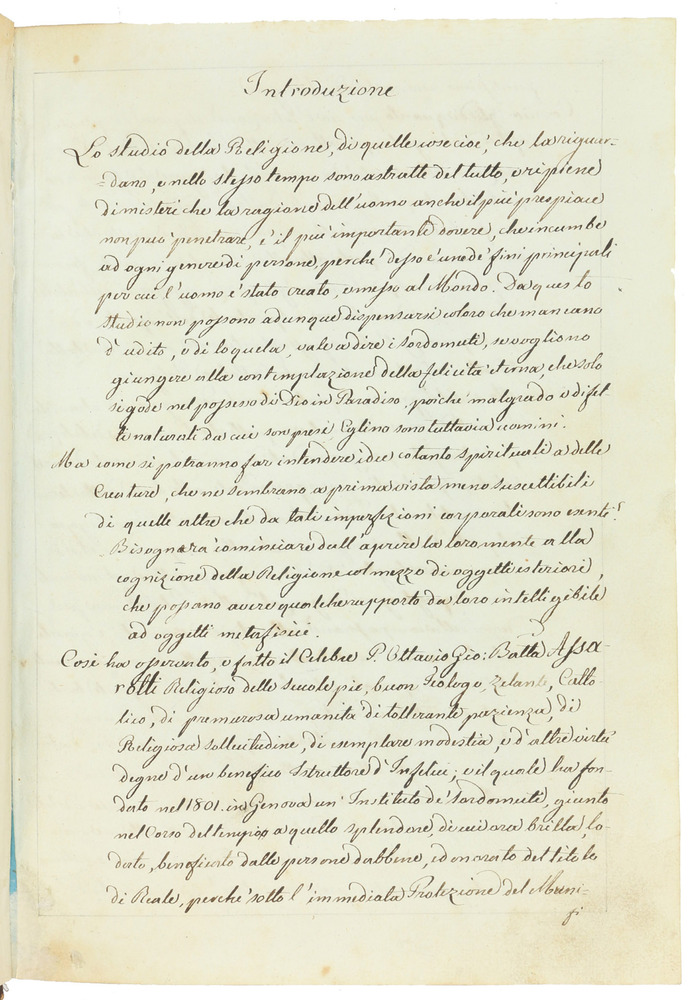 Introduzione
Lo studio della Religione, di quelle cose cioè, che la riguar-
=dano, e nello stesso tempo sono astratte del tutto, e ripiene
di misteri che la ragione dell'uomo anche il più prespicace
non può penetrare, è il più importante dovere, che incumbe
ad ogni genere di persone, perchè desso è uno de' fini principali
per cui l'uomo è stato creato, e messo al Mondo. Da questo
studio non possono adunque dispensarsi coloro che mancano
d'udito, e di loquela, vale a dire i sordomuti, se vogliono
giungere alla contemplazione della felicità eterna, che solo
si gode nel possesso di Dio in Paradiso, poichè malgrado i difet
ti naturali da cui son presi Eglino sono tuttavia uomini.
Ma come si potranno far intendere idee cotanto spirituali a delle
Creature, che ne sembrano a prima vista meno suscettibili
di quelle altre che da tali imperfezioni corporali sono esenti?
Bisognerà cominciare dall'aprire la loro mente alla
cognizione della Religione col mezzo di oggetti esteriori,
che possano avere qualche rapporto da loro intelligibile
ad oggetti metafisici.
Così ha osservato, e fatto il Celebre P. Ottavio Gio: Batta Assa-
rotti Religioso delle Scuole pie, buon Teologo, zelante, Catto-
lico, di premurosa umanità di tollerante pazienza, di
Religiosa sollecitudine, di esemplare modestia, e d'altre virtù
degne d'un benefico Istruttore d'Infelici; e il quale ha fon-
dato nel 1801. in Genova un' Instituto de' Sordomuti, giunto
nel Corso del tempo a quello splendore, di cui ora brilla, lo-
dato, beneficato dalle persone dabbene, ed onorato del titolo
di Reale, perchè sotto l'immediata Protezione del Muni-
fi